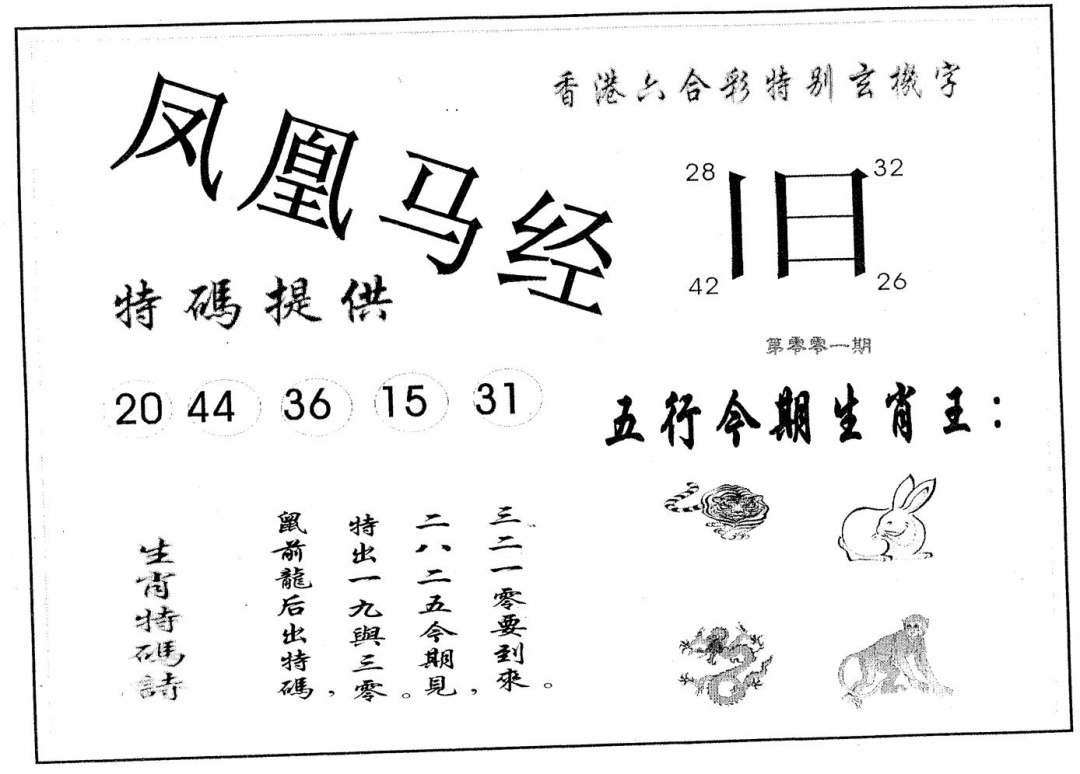 香港六合彩特别玄機字
凤凰马经
28
32
旧
42
26
特碼提供
第零零一期
20 44 36 15 31
五行今期生肖王：
生肖特碼詩
鼠前龍后出特碼，
特出一九與三零。
二八二五今期見，
三二一零要到來。